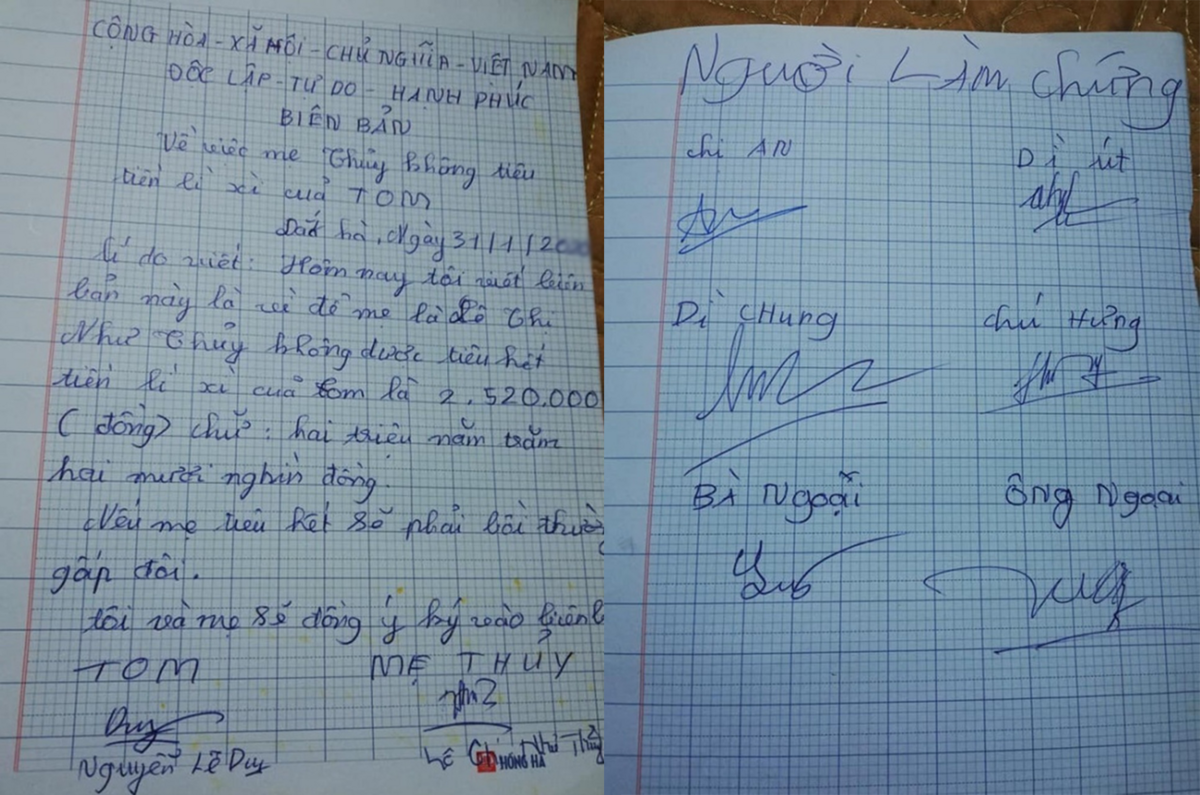 CỘNG HÒA-XÃ HÔI-CHỦ NGHĨA-VIỆT NAM
ĐỘC LẬP-TỰ DO-HẠNH PHÚC
BIÊN BẢN
Về việc mẹ Thủy không tiêu
tiền lì xì cuả TOM
Đắk hà, Ngày 31/1/20
lí do viết: Hôm nay tôi viết biên
bản này là vì để mẹ là Lê Thị
Như Thủy không được tiêu hết
tiền lì xì cuả tom là 2.520.000
(đồng) chữ: hai triệu năm trăm
hai mươi nghìn đồng.
Nếu mẹ tiêu hết sẽ phải bồi thườ
gấp đôi.
tôi và mẹ sẽ đồng ý ký vào biên b
TOM
MẸ THỦY
Duy
Nguyễn Lê Duy
Lê Thị Như Thủy
HỒNG HÀ
Người Làm chứng
chị AN
Dì út
An
Dì CHung
chú Hưng
BÀ Ngoại
ÔNg Ngoại